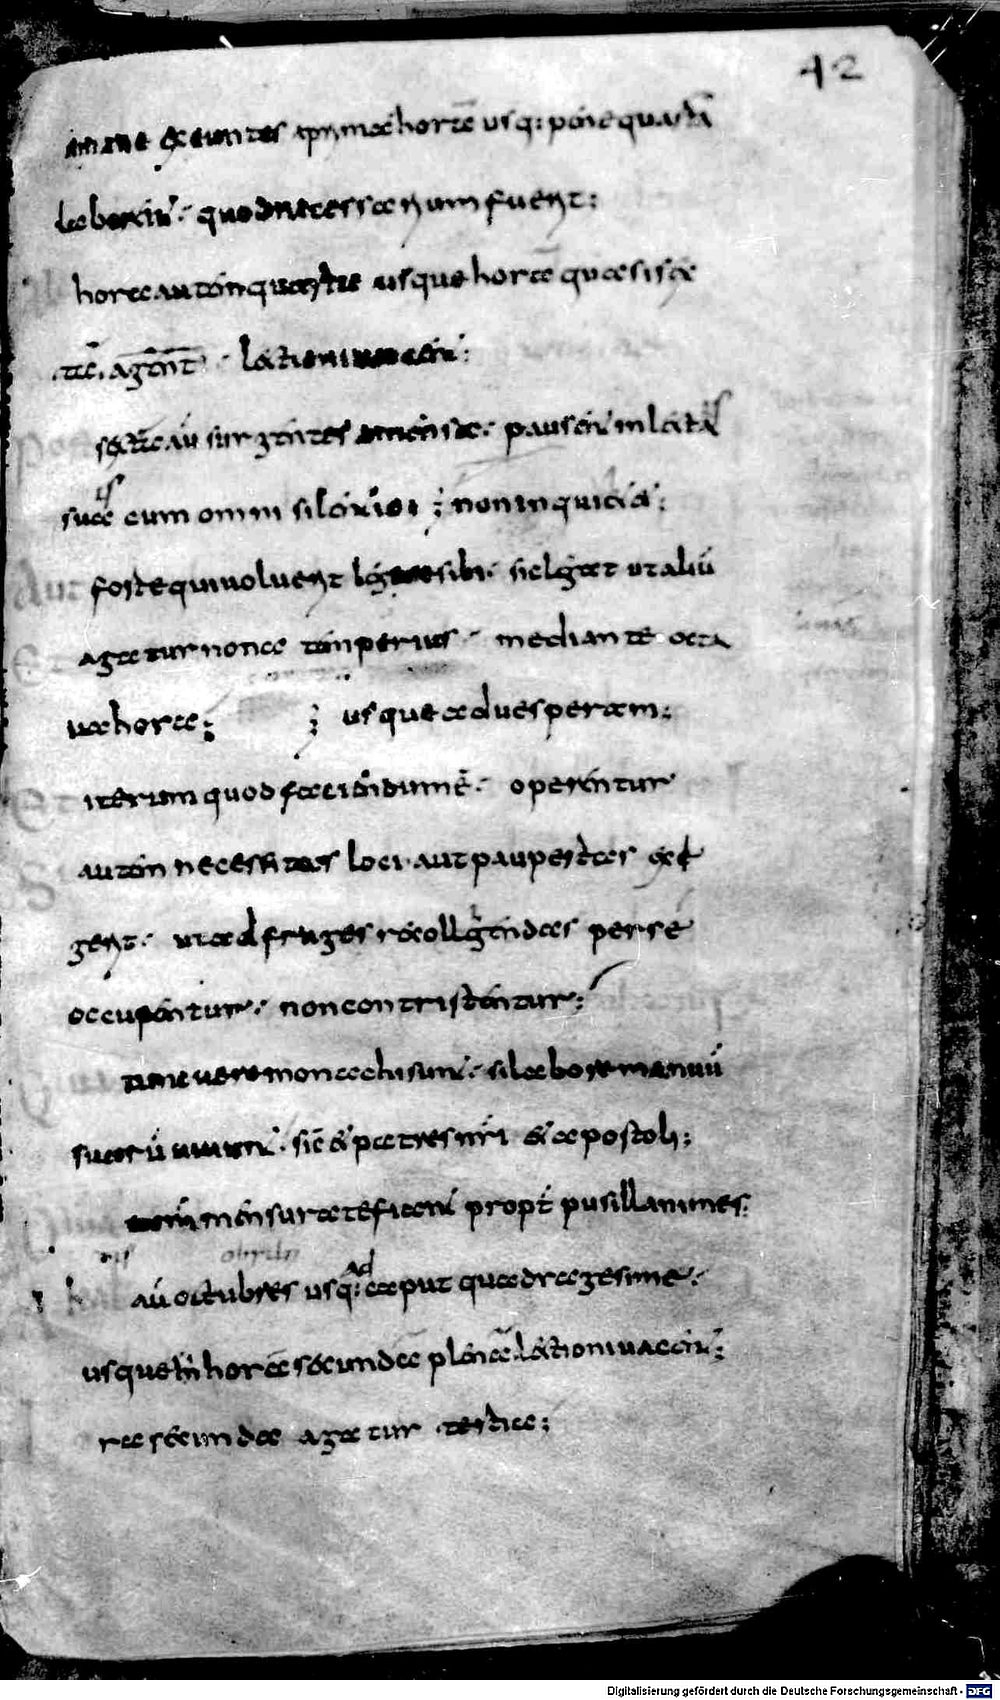 42
mane exeuntes a prima hora usq; pene quartã
laborent quod necessarium fuerit:
hora autem quarta usque hora quasi sex
tã agente lectioni vacent:
sexta aũ surgentes a mensa pausent in lectis
suis cum omni silentio; non inquietet:
forte qui voluerit legere sibi. sic legat ut aliũ
agatur nona temperius mediante octa
va hora: usque ad vesperam:
iterum quod faciendum ẽ operentur
autem necessitas loci aut paupertas exi
gerit ut ad fruges recolligendas per se
occupentur non contristentur:
tunc vere monachi sunt si labore manuũ
suarũ vivunt sic et patres nri et apostoli:
mensurate fiant propt pusillanimes
aũ octubres usq; ad caput quadragesime
usque in hora secunda plena lectioni vacent:
ra secunda agatur tertia:
Digitalisierung gefördert durch die Deutsche Forschungsgemeinschaft - DFG